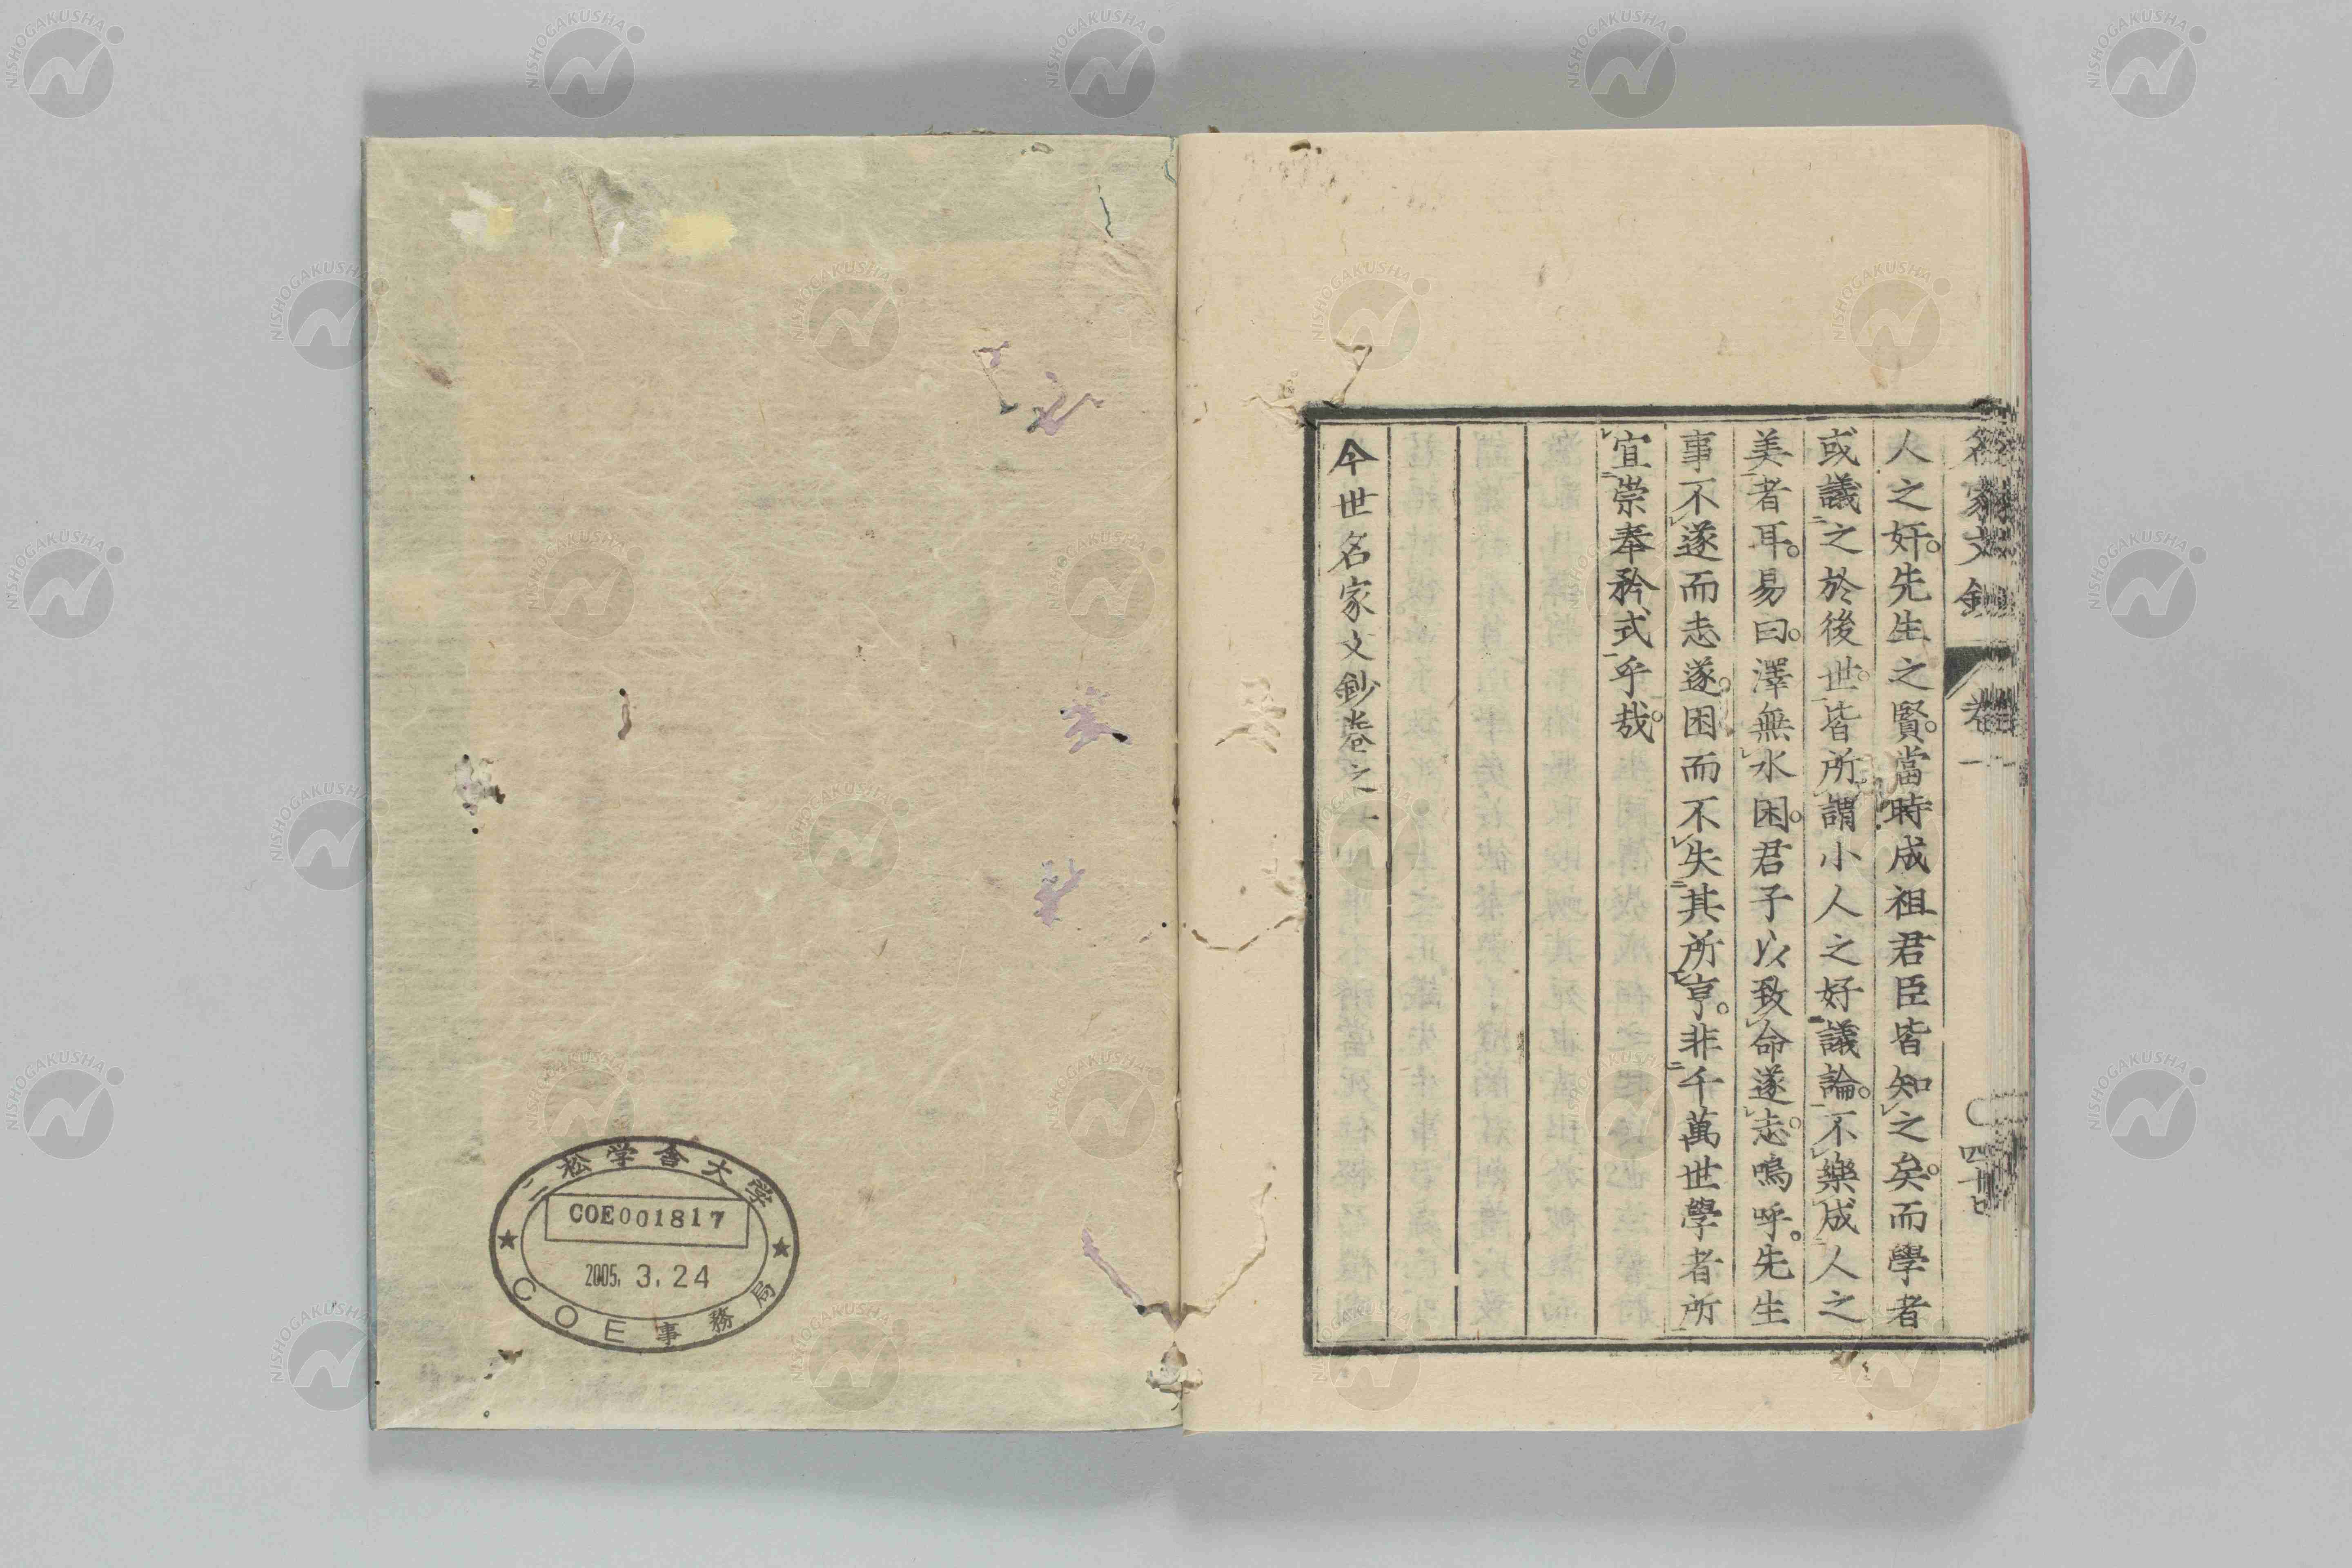 名家文鈔 卷一
人之奸。先生之賢。當時成祖君臣皆知之矣。而學者
或議之於後世。皆所謂小人之好議論。不樂成人之
美者耳。易曰。澤無水困。君子以致命遂志。嗚呼。先生
事不遂而志遂。困而不失其所亨。非千萬世學者所
宜崇奉矜式乎哉。
今世名家文鈔卷之一
二松学舎大学
COE001817
2005. 3. 24
COE事務局
NISHOGAKUSHA